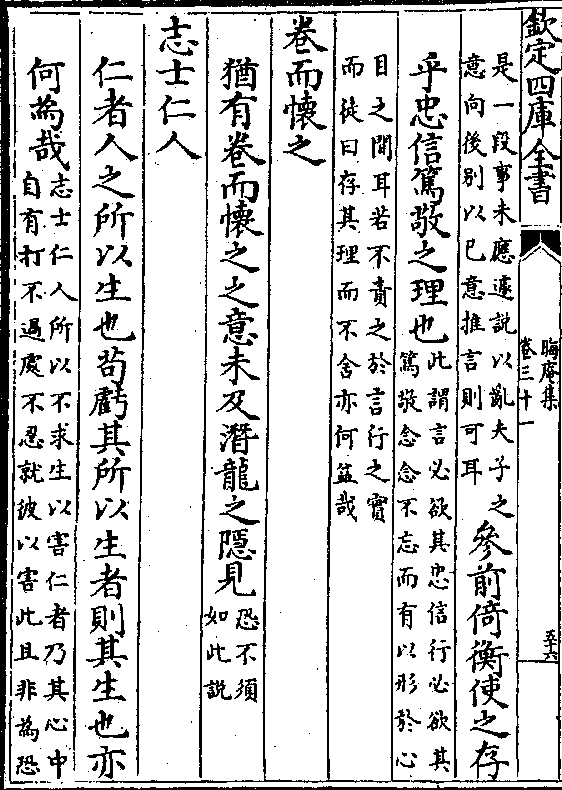 欽定四庫全書
晦庵集
卷三十一
五十六
是一段事未應遽說以亂夫子之
意向後別以已意推言則可耳
參前倚衡使之存
乎忠信篤敬之理也
此謂言必欲其忠信行必欲其
篤敬念念不忘而有以形於心
目之間耳若不責之於言行之實
而徒曰存其理而不舍亦何益哉
卷而懷之
猶有卷而懷之之意未及潛龍之隱見
恐不須
如此說
志士仁人
仁者人之所以生也苟虧其所以生者則其生也亦
何為哉
志士仁人所以不求生以害仁者乃其心中
自有打不過處不忍就彼以害此且非為恐